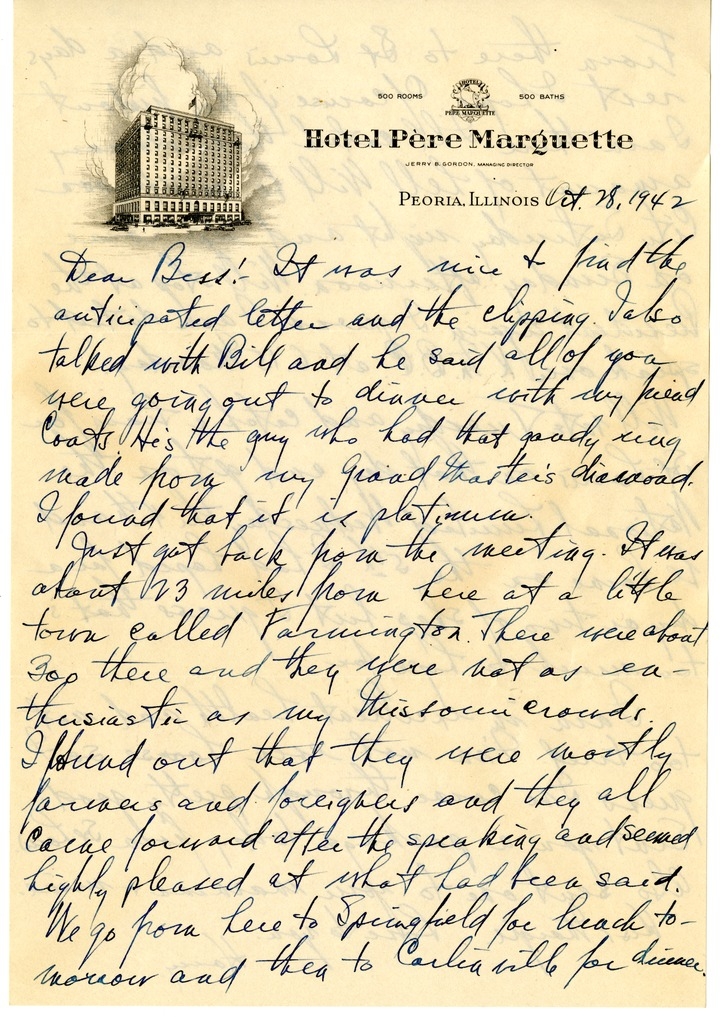 500 ROOMS 500 BATHS
HOTEL
PÈRE MARQUETTE
Hotel Père Marquette
JERRY B. GORDON, MANAGING DIRECTOR
PEORIA, ILLINOIS Oct. 28, 1942
Dear Bess:- It was nice to find the
anticipated letter and the clipping. I also
talked with Bill and he said all of you
were going out to dinner with my friend
Coats. He's the guy who had that gaudy ring
made from my Grand Master's diamond.
I found that it is platinum.
Just got back from the meeting. It was
about 23 miles from here at a little
town called Farmington. There were about
300 there and they were not as en-
thusiastic as my Missouri crowds.
I found out that they were mostly
farmers and foreigners and they all
came forward after the speaking and seemed
highly pleased at what had been said.
We go from here to Springfield for lunch to-
morrow and then to Carlinville for dinner.